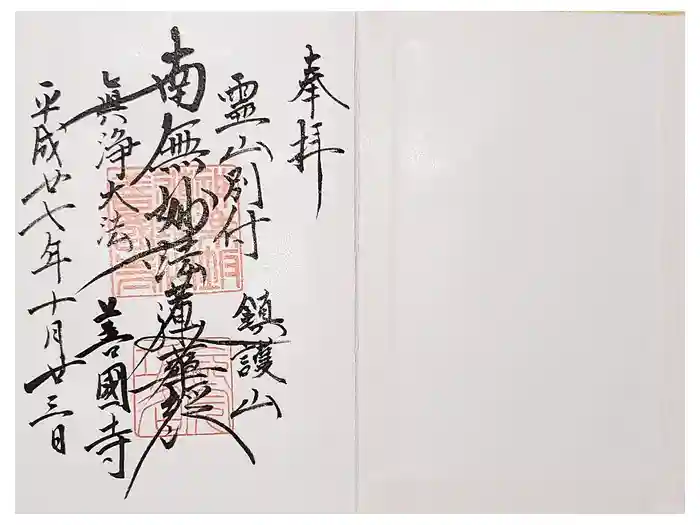 奉拝
霊山別付
鎮護山
南無妙法蓮華経
眞浄大法
善國寺
平成廿七年十月廿三日